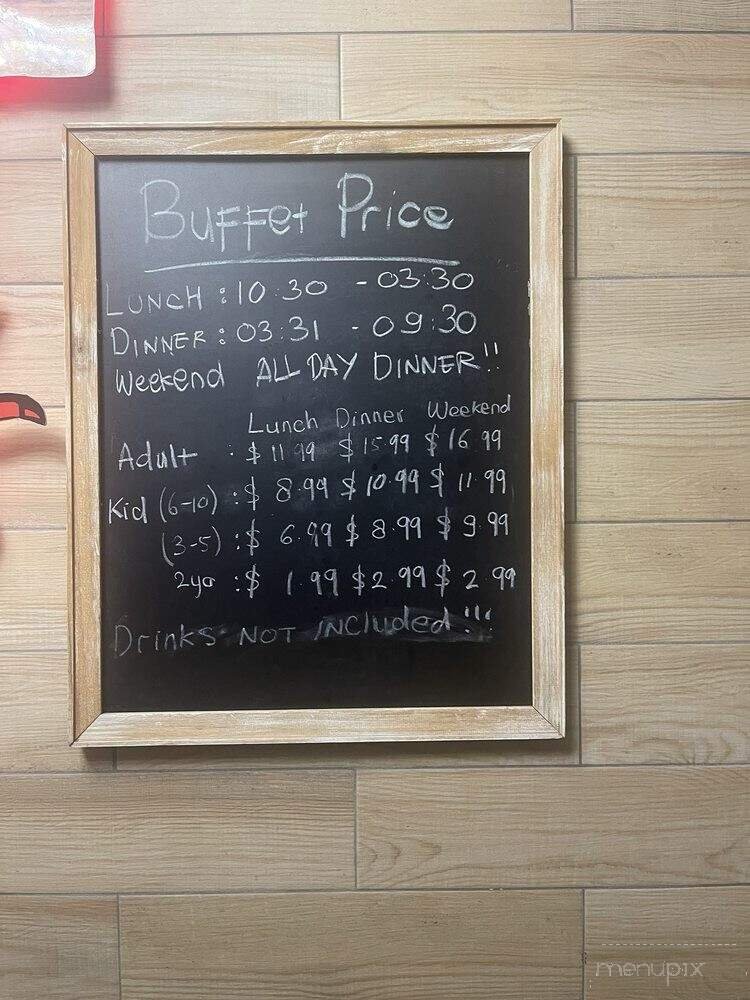 Buffet Price
LUNCH : 10:30 - 03:30
DINNER : 03:31 - 09:30
Weekend ALL DAY DINNER!!
Lunch Dinner Weekend
Adult : $ 11.99 $ 15.99 $ 16.99
Kid (6-10) : $ 8.99 $ 10.99 $ 11.99
(3-5) : $ 6.99 $ 8.99 $ 9.99
2yo : $ 1.99 $ 2.99 $ 2.99
Drinks NOT INCluded!!!
menupix